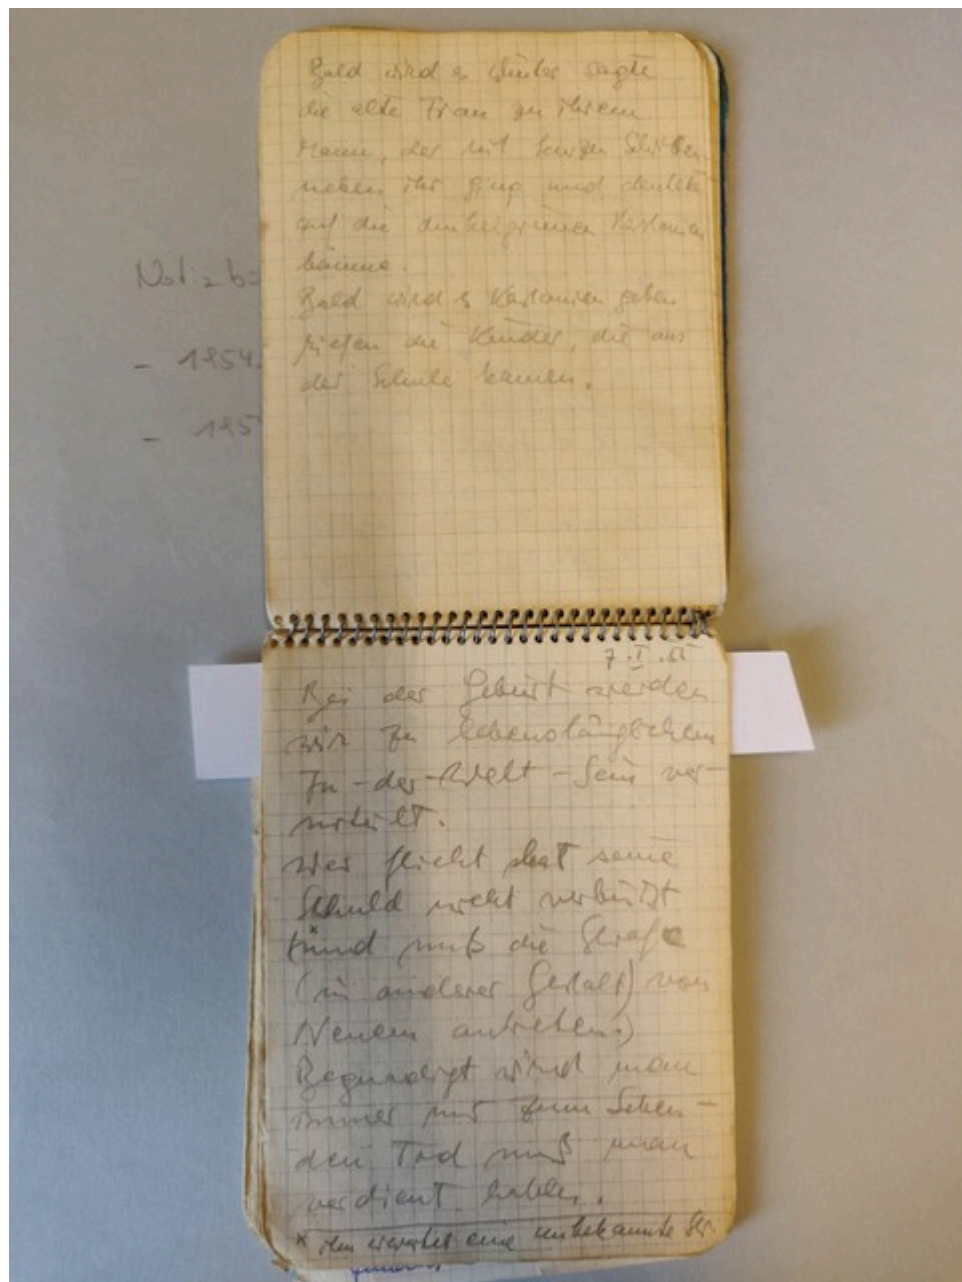 Bald wird es Winter sagte
die alte Frau zu ihrem
Mann, der mit kurzen Schritten
neben ihr ging und deutete
auf die dunkelgrünen Kastanien
bäume.
Bald wird es Kastanien geben
riefen die Kinder, die aus
der Schule kamen.
- 1954
- 195
7.I.55
Bei der Geburt werden
wir zu lebenslänglichem
In-der-Welt-Sein ver-
urteilt.
Wer flieht hat seine
Schuld nicht verbüßt
(*und muß die Strafe
(in anderer Gestalt) von
Neuem antreten.)
Begnadigt wird man
immer nur zum Leben -
den Tod muß man
verdient haben.
* ihn erwartet eine unbekannte